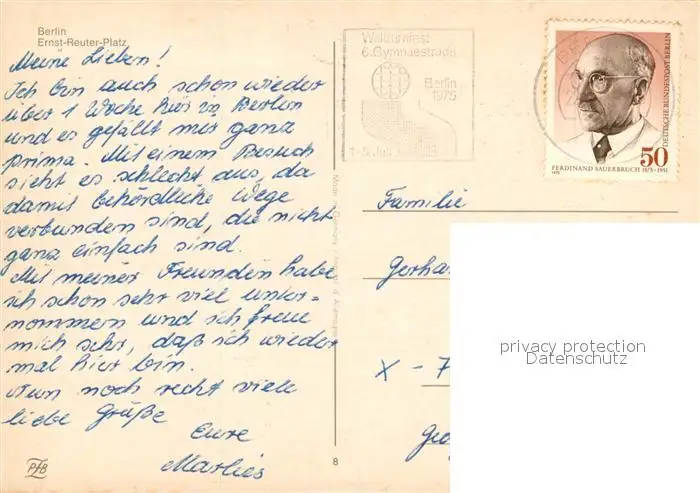 Berlin
Ernst-Reuter-Platz
Meine Lieben!
Ich bin auch schon wieder
über 1 Woche hier in Berlin
und es gefällt mir ganz
prima. Mit einem Besuch
sieht es schlecht aus, da
damit behördliche Wege
verbunden sind, die nicht
ganz einfach sind.
Mit meiner Freundin habe
ich schon sehr viel unter=
nommen und ich freue
mich sehr, daß ich wieder
mal hier bin.
Nun noch recht viele
liebe Grüße
Eure
Marlies
PFB
8
Weltturnfest
6. Gymnaestrada
Berlin
1975
1-5. Juli
DEUTSCHE BUNDESPOST BERLIN
50
FERDINAND SAUERBRUCH 1875-1951
1975
Familie
Gerha
X - 7
Ge
privacy protection
Datenschutz